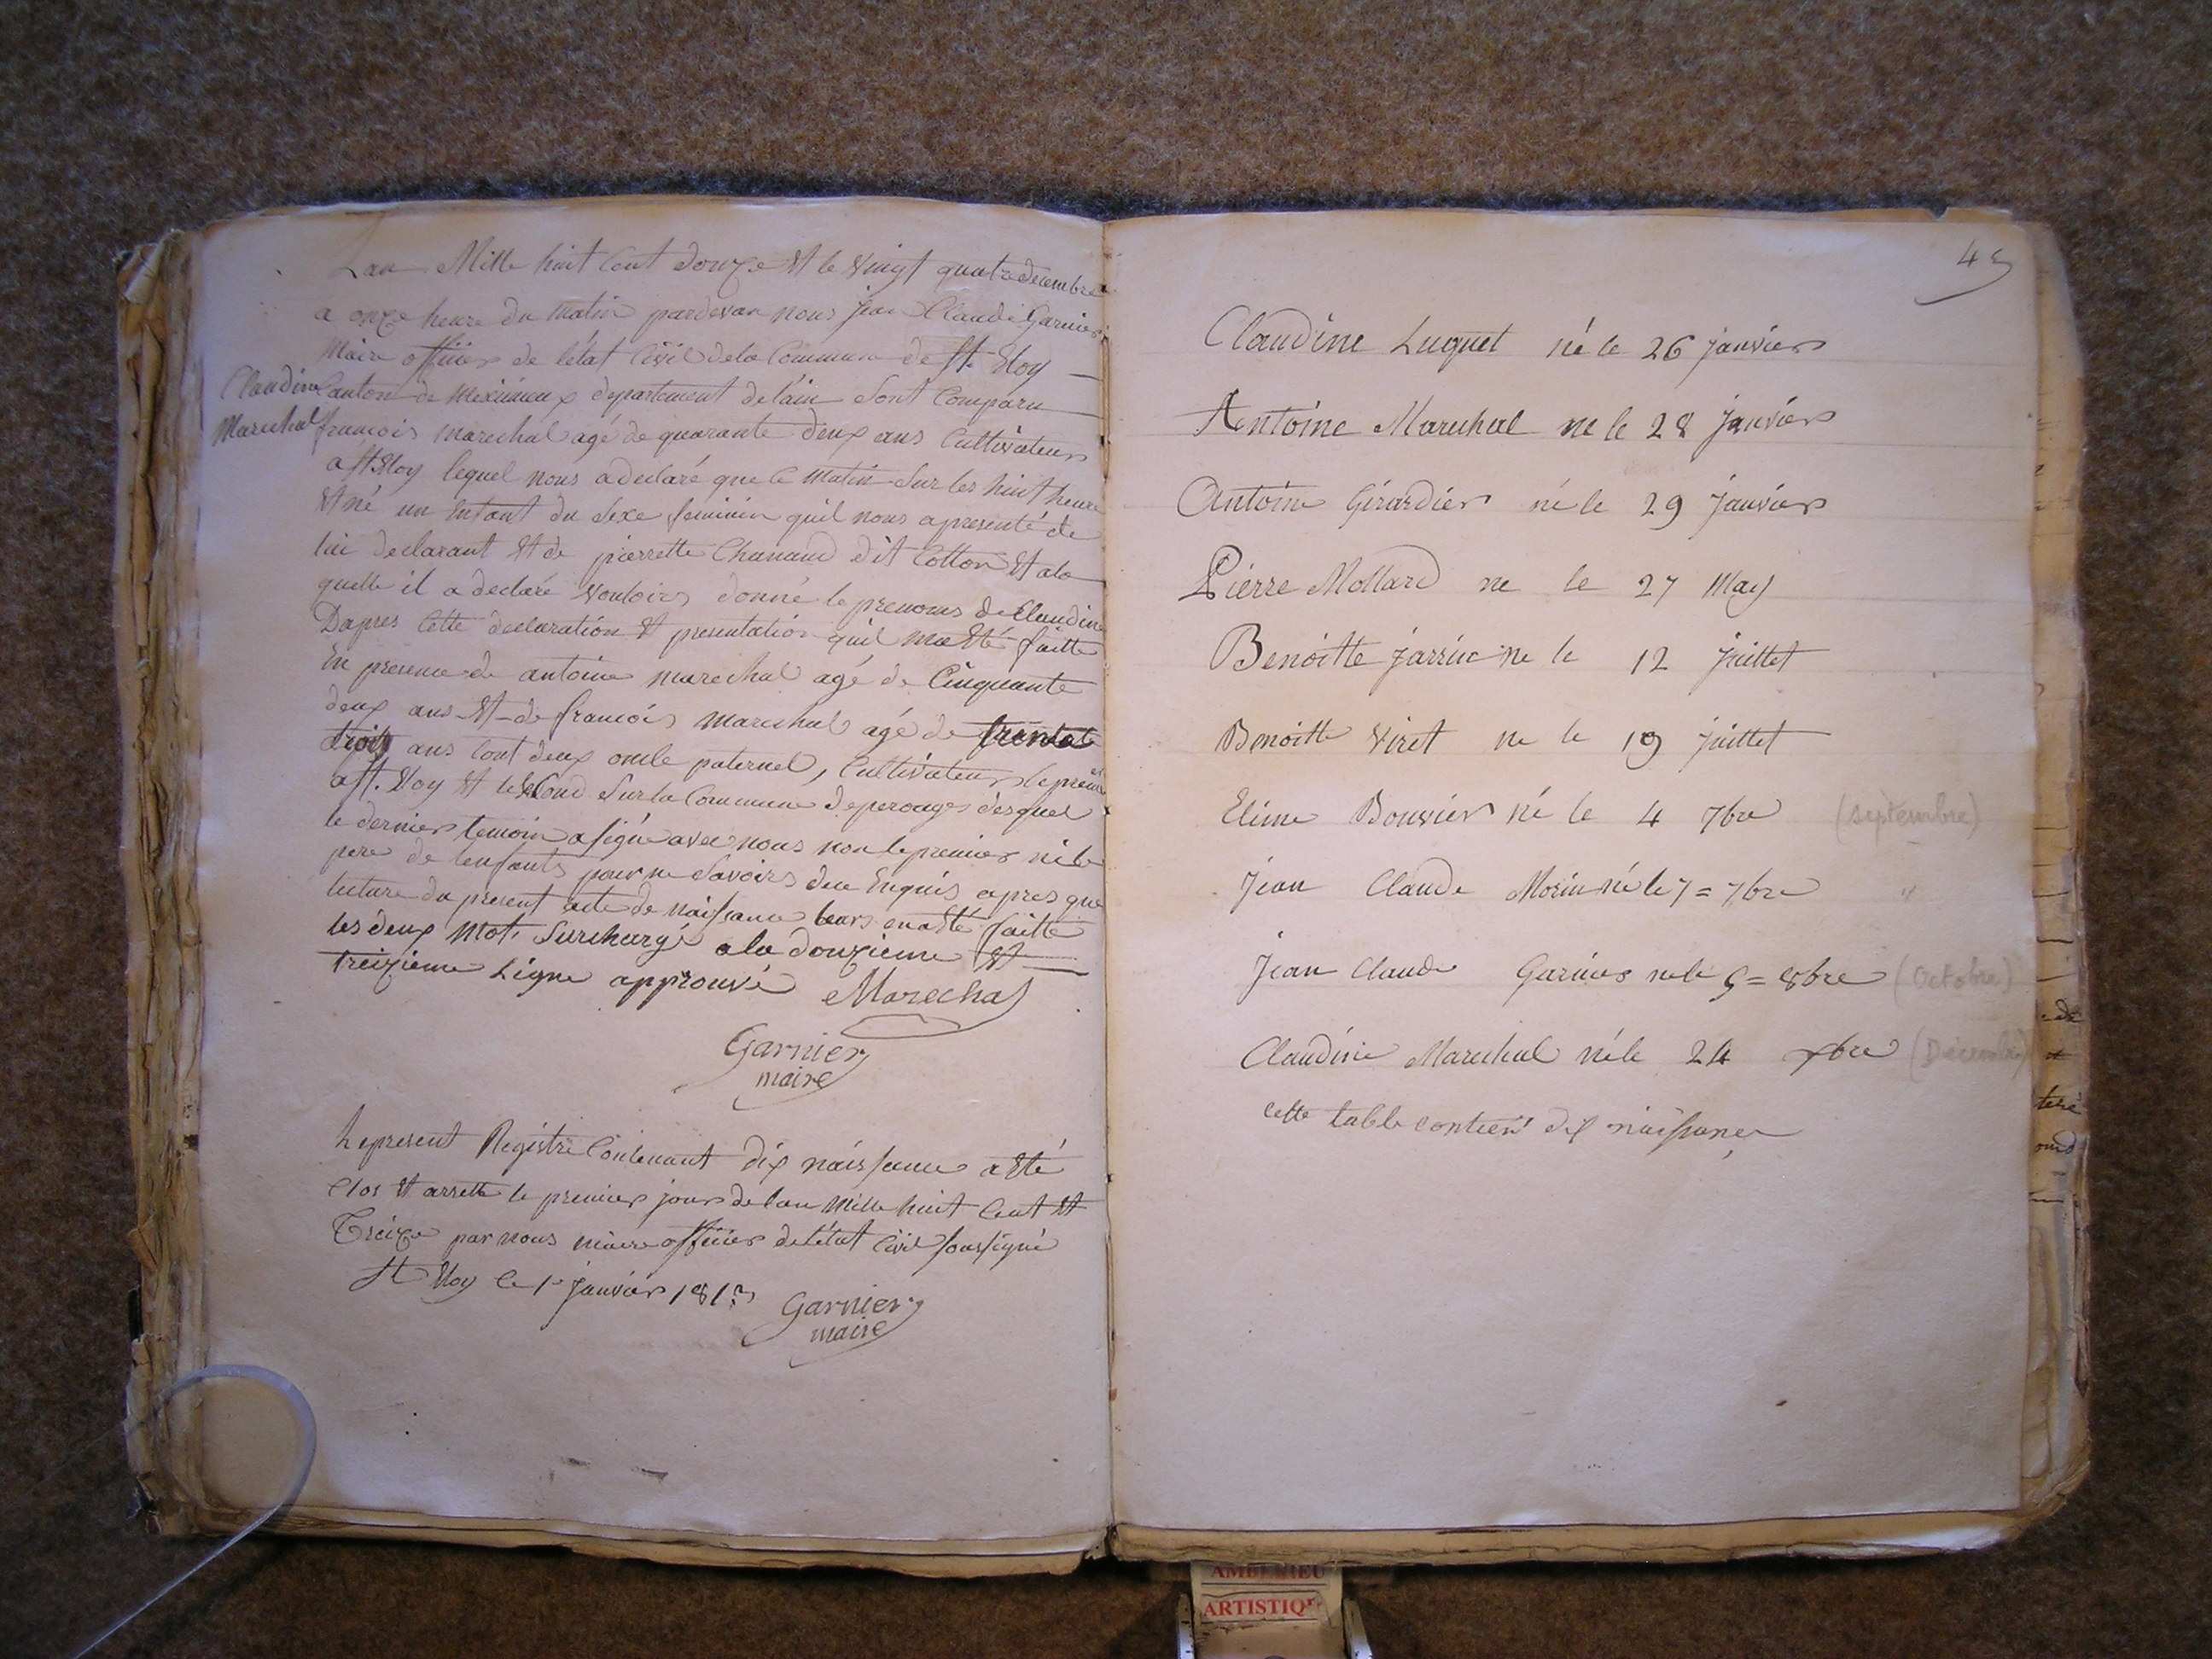 Lan Mille huit Cent douze Et le Vingt quatre decembre
a onze heure du matin pardevan nous jean Claude Garnier
Maire officier de létat Civil dela Commune de St. Eloy
Claudine
Marechal
Canton de Meximieux departement delain Sont Comparu
francois marechal agé de quarante deux ans Cultivateur
a St Eloy lequel nous a declaré que le matin Sur les huit heure
Et né un Enfant du Sexe feminin quil nous apresenté de
lui declarant Et de pierrette Chanaud dit Cotton Et ala
quelle il a declaré Vouloir donné le prenoms de Claudine
Dapres Cette declaration Et presentation quil ma Eté faitte
En presence de antoine marechal agé de Cinquante
deux ans Et de francois marechal agé de trente
trois ans tout deux oncle paternel, Cultivateur le premier
a St. Eloy Et le second Sur la Commune de perouges desquel
le dernier temoin a signé avec nous non le premier ni le
pere de lenfants pour ne Savoir de ce Enquis apres que
lecture du present acte de naissance leurs en a Eté faitte
les deux mot Surchargé a la douzieme Et
treizieme Ligne approuvé Marechal
Garnier
maire
Le present Registre Contenant dix naissance a Eté
Clos Et arretté le premier jour de lan mille huit Cent Et
Treize par nous maire officier de létat Civil soussigné
St Eloy le 1er janvier 1813
Garnier
maire
45
Claudine Luquet né le 26 janvier
Antoine Marechal ne le 28 janvier
Antoine Girardier né le 29 janvier
Pierre Mollard ne le 27 May
Benoitte jarrin ne le 12 juillet
Benoitte Viret ne le 19 juillet
Etiene Bouvier né le 4 7bre (septembre)
Jean Claude Morin né le 7 = 7bre "
Jean Claude Garnier né le 5 = 8bre (Octobre)
Claudine Marechal né le 24 xbre (Decembre)
cette table contient dix naissance
AMBERIEU
ARTISTIQU